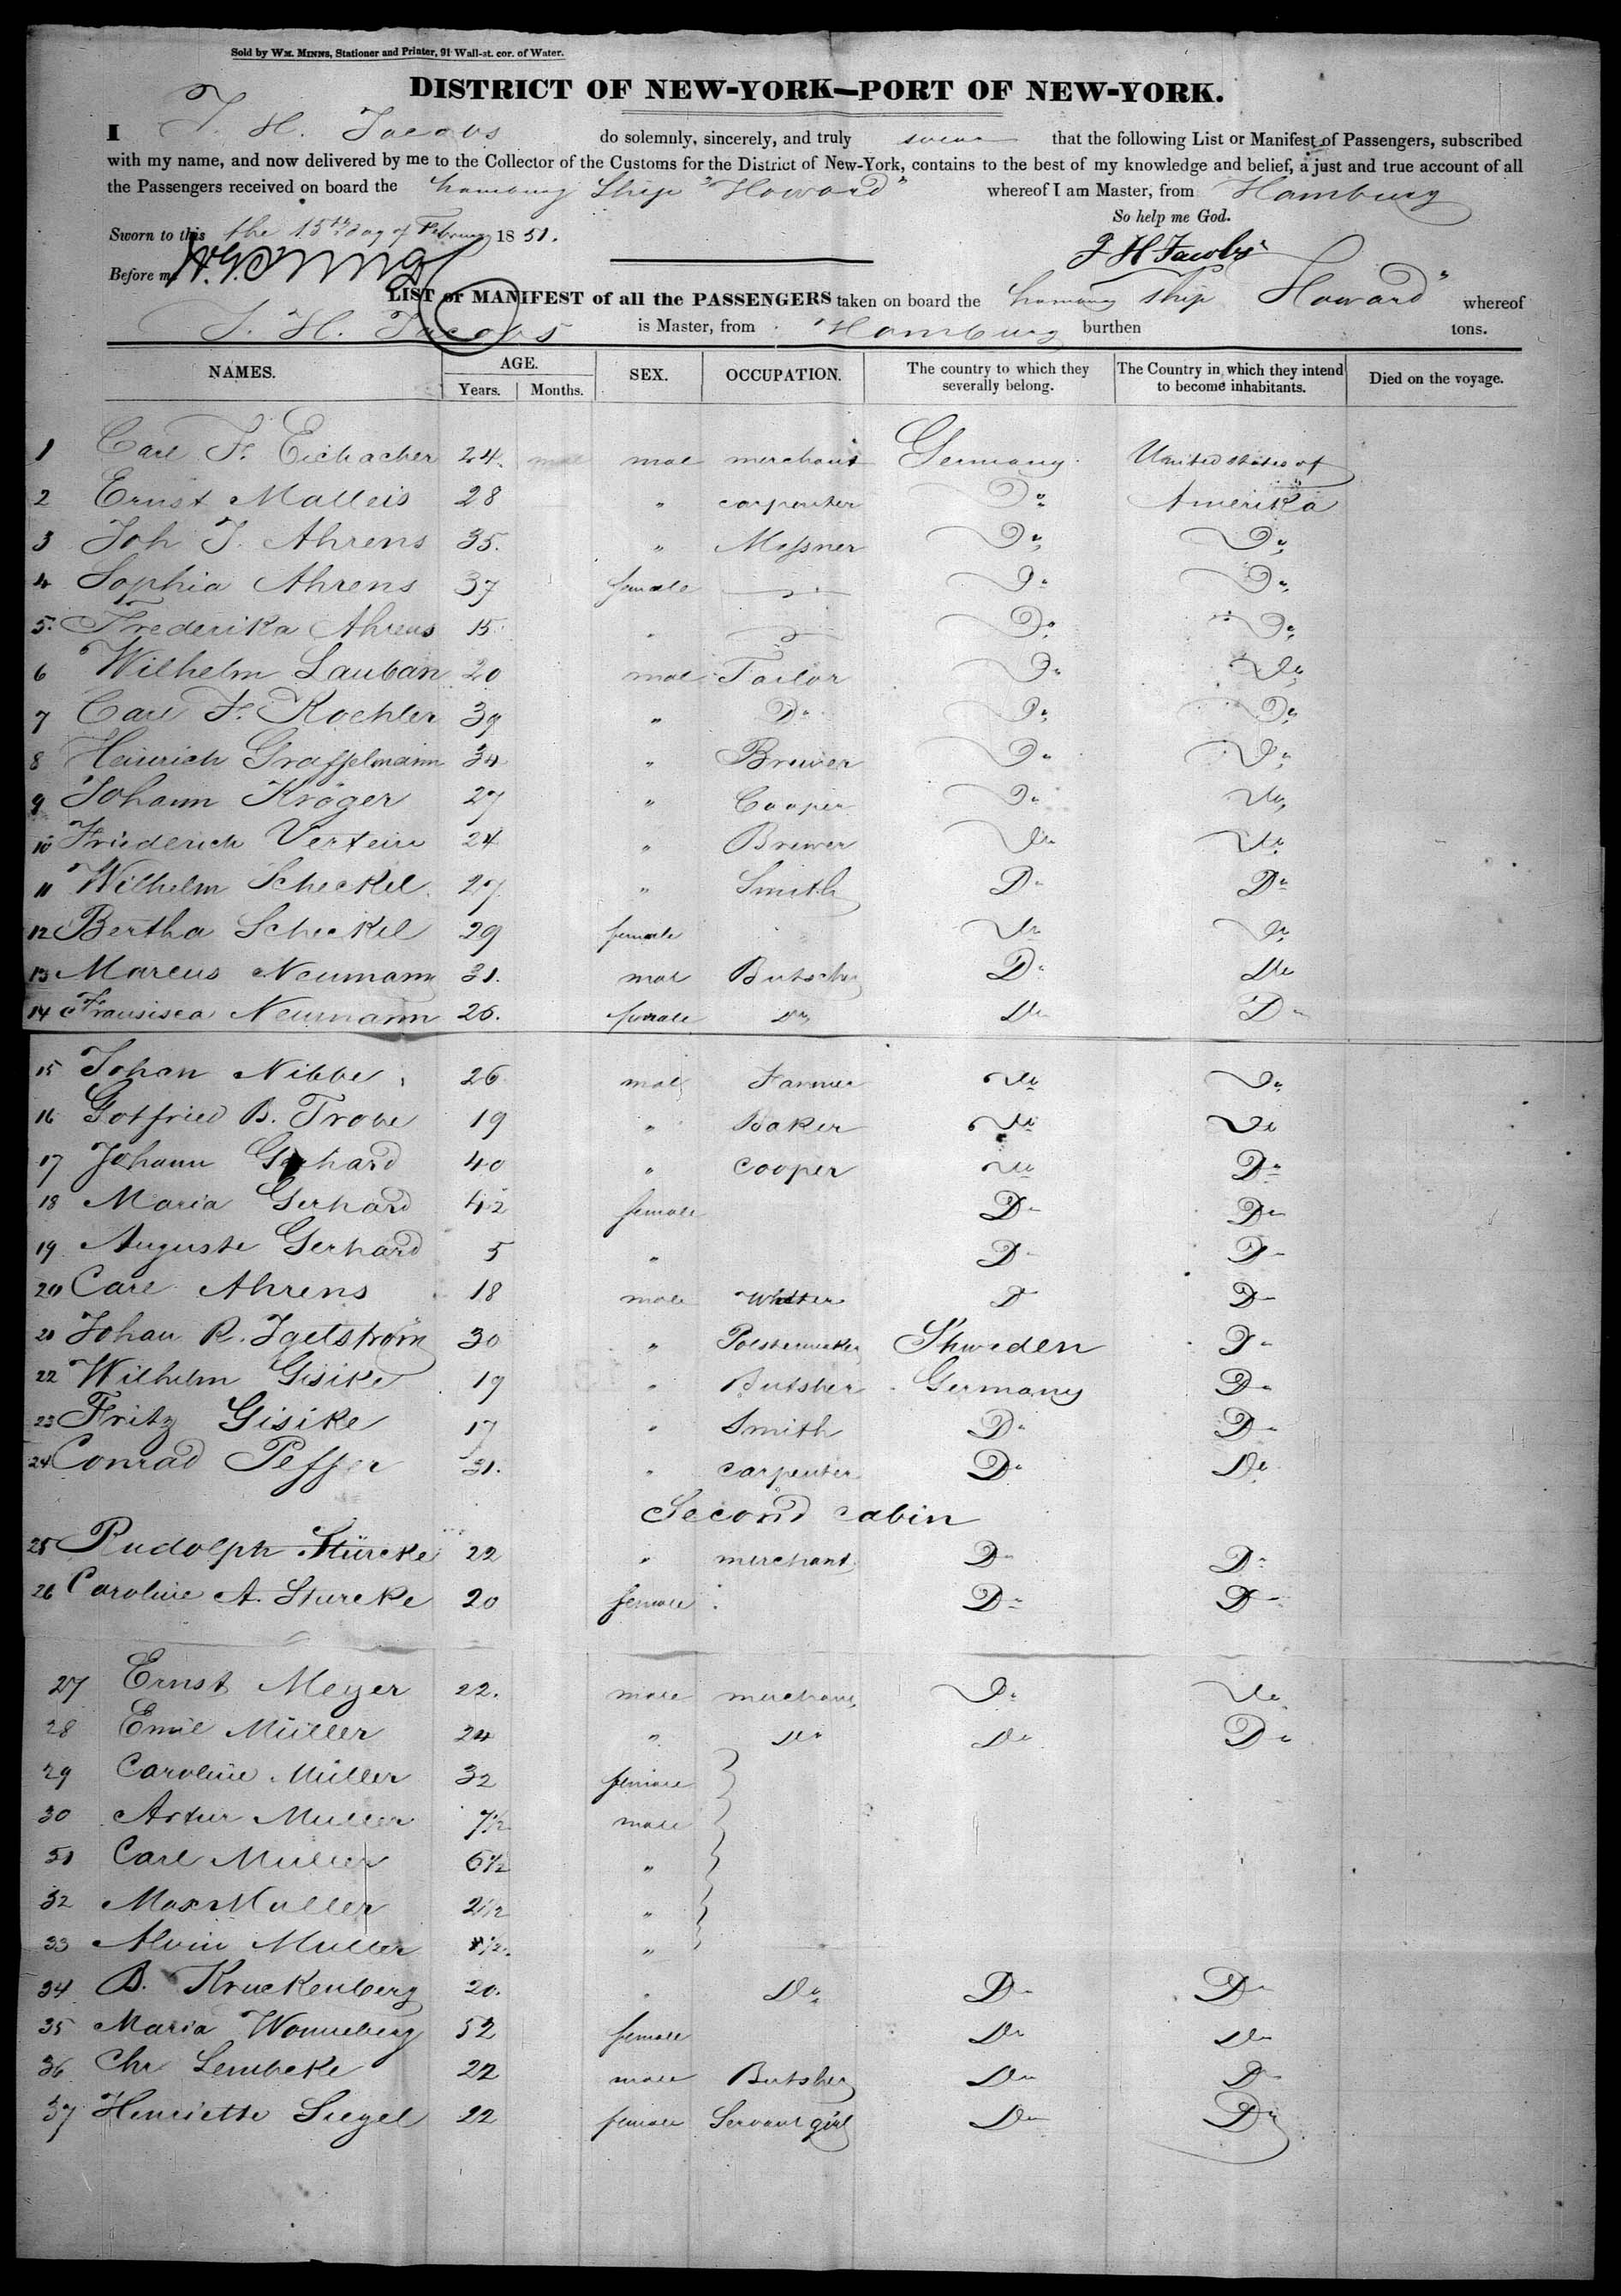 Sold by WM. MINNS, Stationer and Printer, 91 Wall-st. cor. of Water.
DISTRICT OF NEW-YORK—PORT OF NEW-YORK.
I J. H. Jacobs do solemnly, sincerely, and truly swear that the following List or Manifest of Passengers, subscribed
with my name, and now delivered by me to the Collector of the Customs for the District of New-York, contains to the best of my knowledge and belief, a just and true account of all
the Passengers received on board the hamburg Ship "Howard" whereof I am Master, from Hamburg
So help me God.
Sworn to this the 15th day of February 1851.
J H Jacobs
Before me
LIST or MANIFEST of all the PASSENGERS taken on board the hamburg ship Howard" whereof
J. H. Jacobs is Master, from Hamburg burthen tons.
NAMES. AGE. Years. Months. SEX. OCCUPATION. The country to which they severally belong. The Country in which they intend to become inhabitants. Died on the voyage.
1 Carl F. Eichacher 24. mal merchant Germany United states of
2 Ernst Malleis 28 " carpenter Do Amerika
3 Joh J. Ahrens 35. " Messner Do Do
4 Sophia Ahrens 37 female Do Do
5. Frederika Ahrens 15 " Do Do
6 Wilhelm Lauban 20 mal Tailor Do Do
7 Carl F. Koehler 39 " Do Do Do
8 Heinrich Graffelmann 34 " Brewer Do Do
9 Johann Kröger 27 " Cooper Do Do
10 Friederich 24 " Brewer Do Do
11 Wilhelm Scheckel 27 " Smith Do Do
12 Bertha Scheckel 29 female Do Do
13 Marcus Neumann 31. mal Butscher Do Do
14 Fransisca Neumann 26. female Do Do Do
15 Johan Nibbe 26 mal Farmer Do Do
16 Gotfried B. Trobe 19 " Baker Do Do
17 Johann Gerhard 40 " cooper Do Do
18 Maria Gerhard 42 female Do Do
19 Auguste Gerhard 5 " Do Do
20 Carl Ahrens 18 male Do Do
21 Johan R. Igelstrom 30 " Shweden Do
22 Wilhelm Gisike 19 " Butsher Germany Do
23 Fritz Gisike 17 " Smith Do Do
24 Conrad Peffer 31. " carpenter Do Do
Second cabin
25 Rudolph Stürcke 22 " merchant Do Do
26 Caroline A. Sturcke 20 female Do Do
27 Ernst Meyer 22. male merchant Do Do
28 Emil Müller 24 " Do Do Do
29 Caroline Müller 32 female
30 Artur Muller 7½ male
31 Carl Muller 6½ "
32 Max Muller 2½ "
33 Alvin Muller "
34 B. Kruckenberg 20. " Do Do Do
35 Maria Wonneberg 52 female Do Do
36 Chr Lembcke 22 male Butsher Do Do
37 Henriette Siegel 22 female Servant girl Do Do